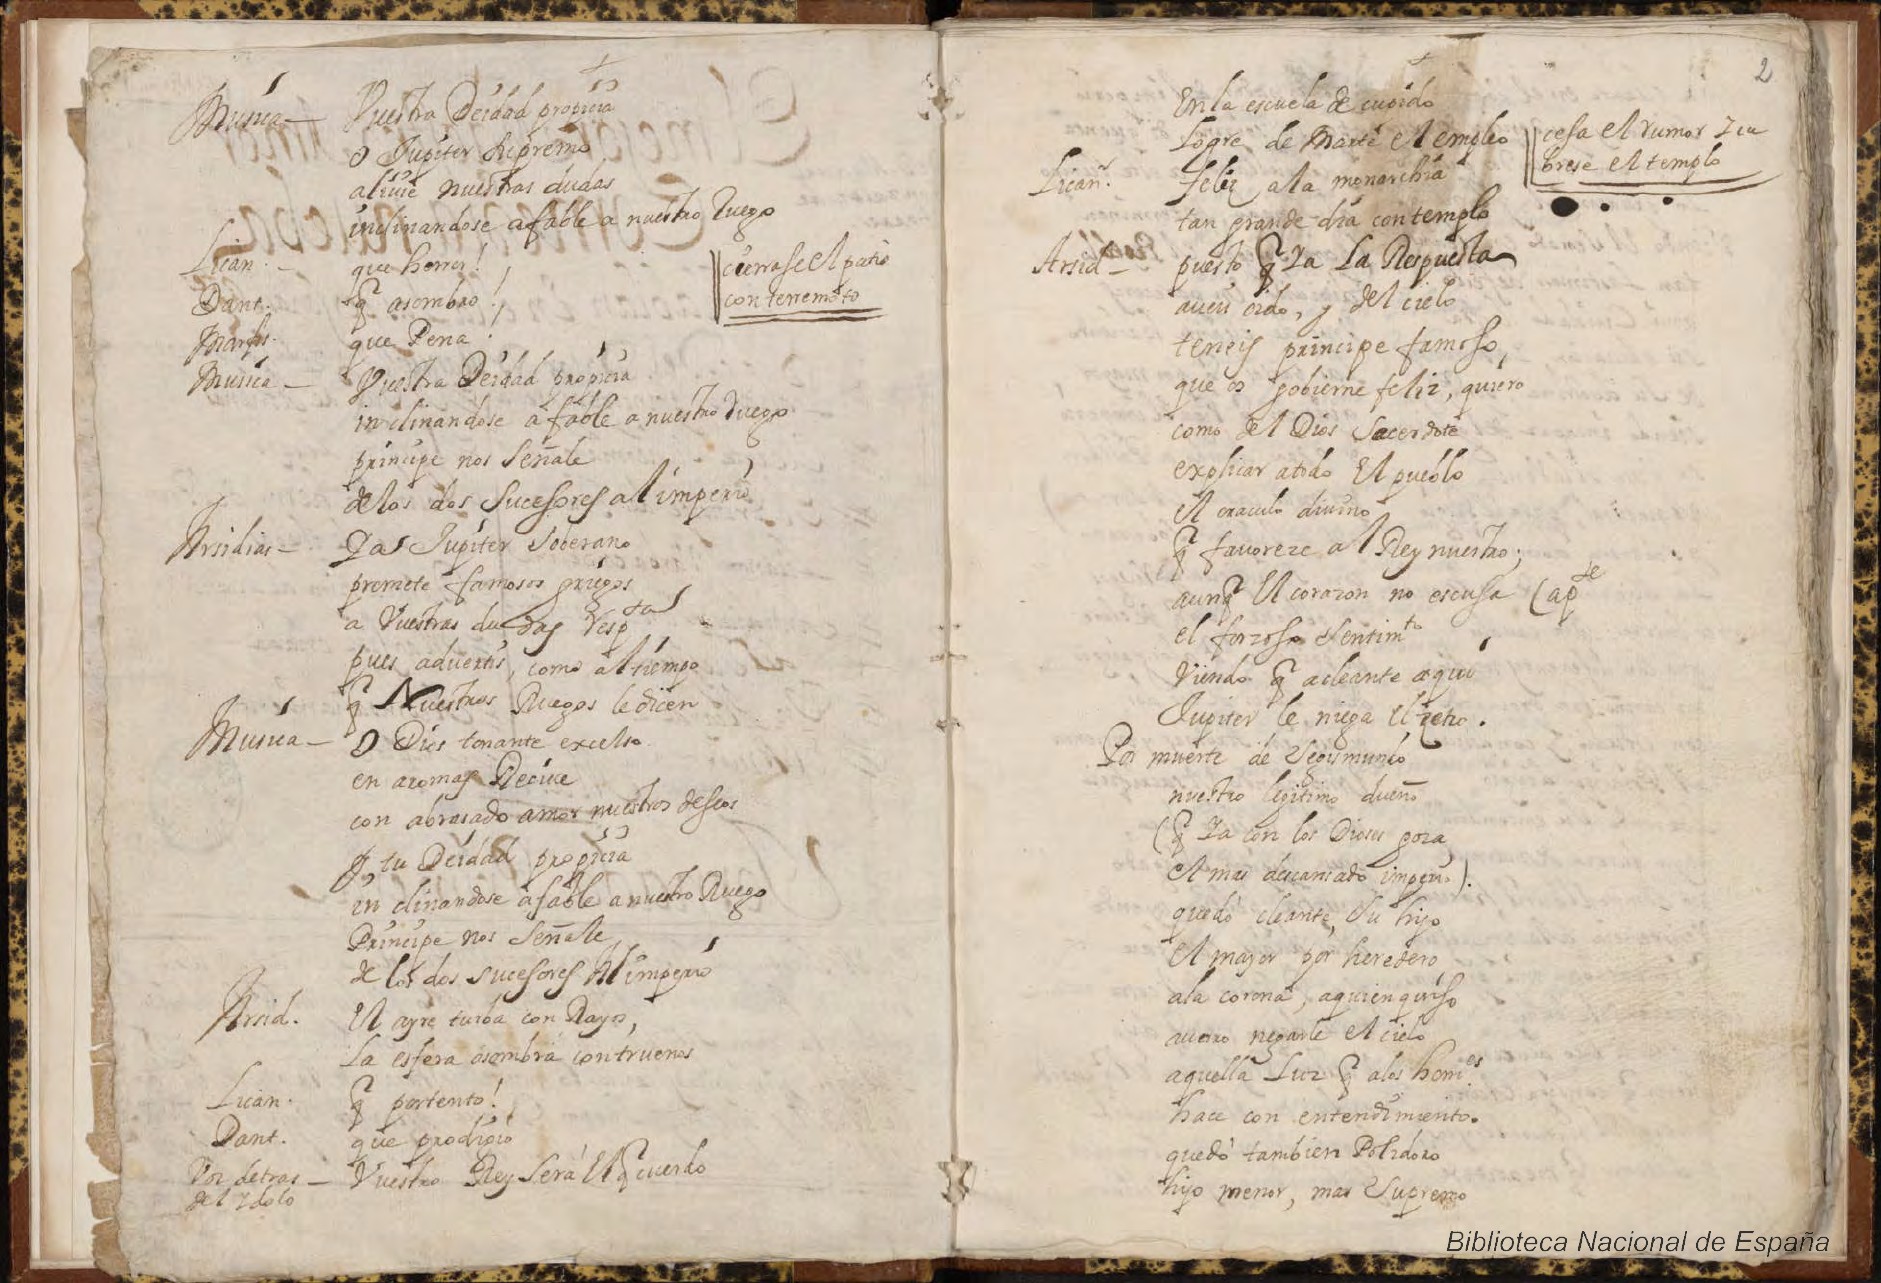 Musica — Vuestra Deidad propicia
o Jupiter supremo
aliuie nuestras dudas
inclinandose afable a nuestro Ruego
Lican. — que horror!
cierrase el patio
Dant. q̃ asombro!
con terremoto
Marfis. que Pena
Musica — Vuestra Deidad propicia
inclinandose afable a nuestro ruego
principe nos señale
de los dos sucesores al imperio
Arsidias — Ya Jupiter soberano
promete famosos griegos
a Vuestras dudas resp.ta
pues aduertis, como al tiempo
q̃ Nuestros Ruegos le dicen
Musica — o Dios tonante excelso
en aromas Reciue
con abrasado amor nuestros deseos
y tu Deidad propicia
inclinandose afable a nuestro Ruego
Principe nos señale
de los dos sucesores al imperio
Arsid. El ayre turba con Rayos,
la esfera asombra con truenos
Lican. q̃ portento!
Dant. que prodigio
Por detras — Vuestro Rey será El q̃ cuerdo
del Ydolo
2
En la escuela de cupido
logre de Marte el empleo
cesa el rumor Y cu
brese el templo
Lican.r feliz a la monarchia
tan grande dia contemplo
Arsid — puesto q̃ Ya La Respuesta
aueis oido, y del cielo
teneis principe famoso,
que os gobierne feliz, quiero
como del Dios Sacerdote
explicar a todo El pueblo
el oraculo diuino
q̃ favoreze al Rey nuestro;
aunq̃ El corazon no escusa (ap.te
el forzoso sentim.to
Viendo q̃ a cleante aqui
Jupiter le niega el zetro.
Por muerte de Segismundo
nuestro legitimo dueño
(q̃ Ya con los Dioses goza
el mas descansado imperio).
quedó cleante, su hijo
el mayor por heredero
a la corona, a quien quiso
auaro negarle el cielo
aquella Luz q̃ a los hom.es
hace con entendimiento.
quedó tambien Polidoro
hijo menor, mas supremo
Biblioteca Nacional de España